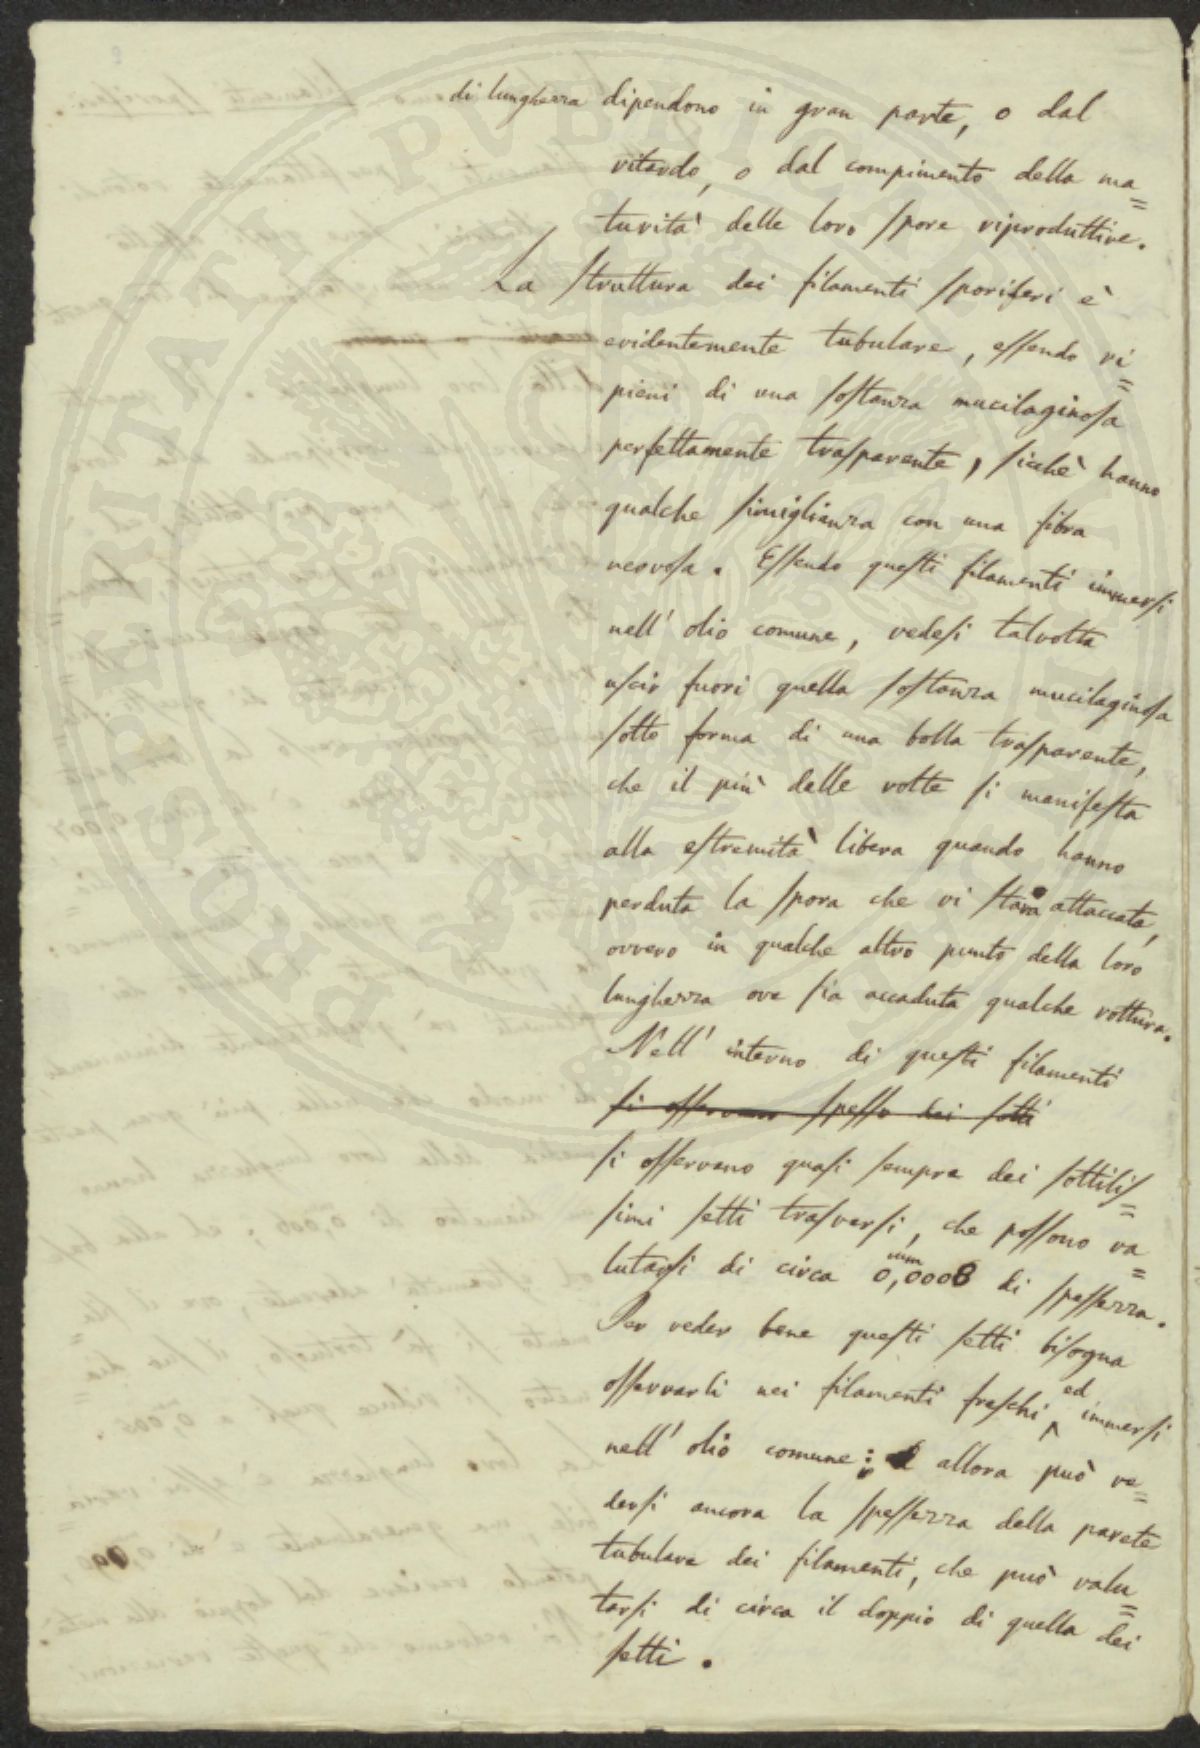 di lunghezza dipendono in gran parte, o dal
ritardo, o dal compimento della ma=
turità delle loro spore riproduttive.
La struttura dei filamenti sporiferi è
evidentemente tubulare, essendo ri=
pieni di una sostanza mucilaginosa
perfettamente trasparente, sicchè hanno
qualche simiglianza con una fibra
nervosa. Essendo questi filamenti immersi
nell' olio comune, vedesi talvolta
uscir fuori quella sostanza mucilaginosa
sotto forma di una bolla trasparente,
che il più delle volte si manifesta
alla estremità libera quando hanno
perduta la spora che vi stava attaccata,
ovvero in qualche altro punto della loro
lunghezza ove sia accaduta qualche rottura.
Nell' interno di questi filamenti
si osservano spesso dei sotti
si osservano quasi sempre dei sottilis=
simi setti trasversi, che possono va=
lutarsi di circa 0,mm0008 di spessezza.
Per veder bene questi setti bisogna
osservarli nei filamenti freschi ed immersi
nell' olio comune: allora può ve=
dersi ancora la spessezza della parete
tubulare dei filamenti, che può valu=
tarsi di circa il doppio di quella dei
setti.
PROSPERITATI PVBLICAE